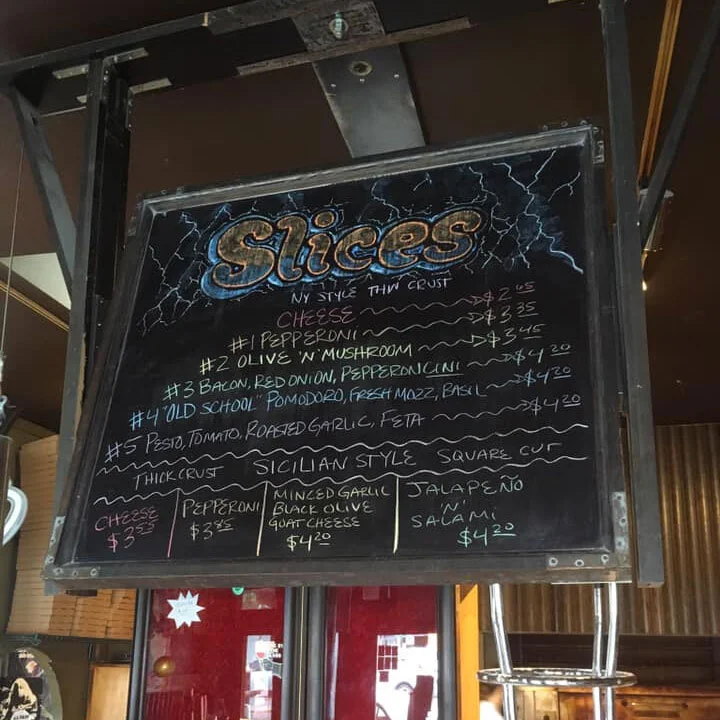 Slices
NY STYLE THIN CRUST
CHEESE $2.65
#1 PEPPERONI $3.35
#2 OLIVE 'N' MUSHROOM $3.45
#3 BACON, RED ONION, PEPPERONCINI $4.20
#4 "OLD SCHOOL" POMODORO, FRESH MOZZ, BASIL $4.20
#5 PESTO, TOMATO, ROASTED GARLIC, FETA $4.20
THICK CRUST SICILIAN STYLE SQUARE CUT
CHEESE
$3.55
PEPPERONI
$3.85
MINCED GARLIC
BLACK OLIVE
GOAT CHEESE
$4.20
JALAPEÑO
'N'
SALAMI
$4.20